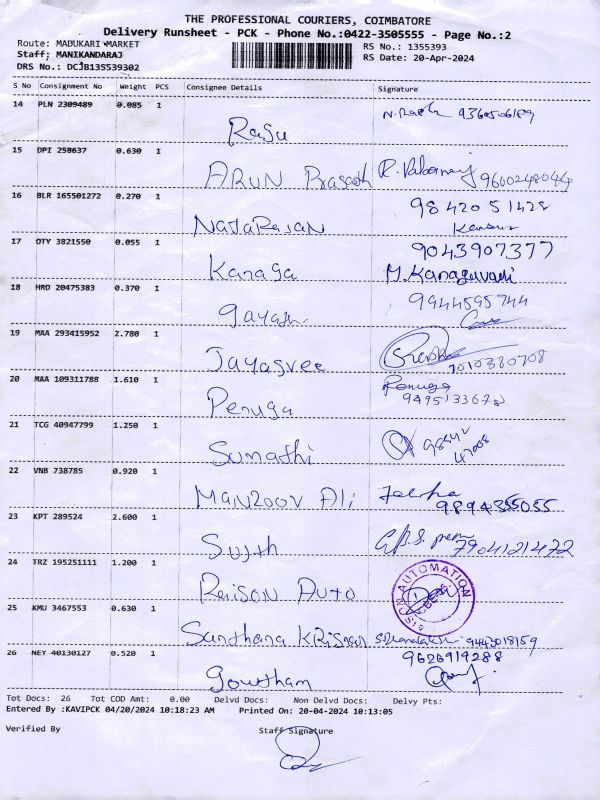 THE PROFESSIONAL COURIERS, COIMBATORE
Delivery Runsheet - PCK - Phone No.:0422-3505555 - Page No.:2
Route: MADUKARI MARKET RS No.: 1355393
Staff: MANIKANDARAJ RS Date: 20-Apr-2024
DRS No.: DCJB135539302
S No Consignment No Weight PCS Consignee Details Signature
14 PLN 2309489 0.085 1
Raju
15 DPI 258637 0.630 1
ARUN Prasath 9600248044
16 BLR 165501272 0.270 1 98420 51428
NATARAJAN
17 OTY 3821550 0.055 1 9043907377
Kanaga M. Kanaguvadi
18 HRD 20475383 0.370 1 9944595744
gayathri
19 MAA 293415952 2.780 1
Jayasree 7010380708
20 MAA 109311788 1.610 1 Renuga
Penuga 9495133678
21 TCG 40947799 1.250 1
Sumathi
22 VNB 738785 0.920 1
Manzoov Ali 9894355055
23 KPT 289524 2.600 1
Sujith 7904121472
24 TRZ 195251111 1.200 1 AUTOMATION
Raison Auto
25 KMU 3467553 0.630 1
Santhana Krisnan 9443018159
26 NEY 40130127 0.520 1 9626919288
Goutham
Tot Docs: 26 Tot COD Amt: 0.00 Delvd Docs: Non Delvd Docs: Delvy Pts:
Entered By :KAVIPCK 04/20/2024 10:18:23 AM Printed On: 20-04-2024 10:13:05
Verified By Staff Signature